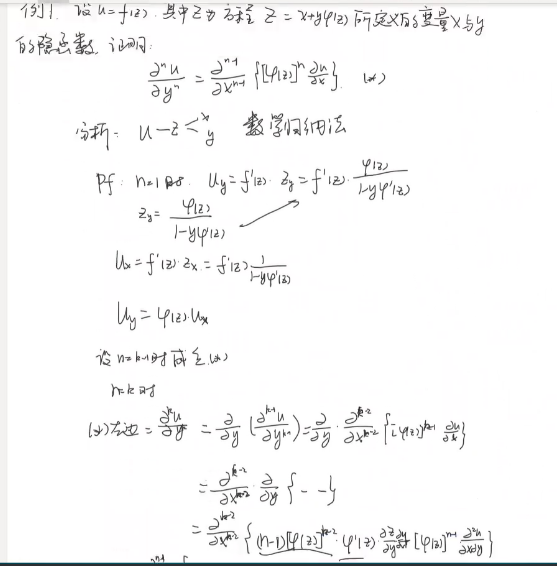 例1. 设 u=f(z), 其中z为方程 z=x+yφ(z) 所定义的变量x与y
的隐函数, 证明:
∂ⁿu/∂yⁿ = ∂ⁿ⁻¹/∂xⁿ⁻¹ {[φ(z)]ⁿ ∂u/∂x}. (*)
分析: u—z< x y 数学归纳法
Pf: n=1时. u_y=f'(z)·z_y=f'(z)·φ(z)/(1-yφ'(z))
z_y=φ(z)/(1-yφ'(z))
u_x=f'(z)·z_x=f'(z)·1/(1-yφ'(z))
u_y=φ(z)·u_x
设n=k-1时成立(*)
n=k时
(*)左边=∂ᵏu/∂yᵏ=∂/∂y(∂ᵏ⁻¹u/∂yᵏ⁻¹)=∂/∂y·∂ᵏ⁻²/∂xᵏ⁻²{[φ(z)]ᵏ⁻¹ ∂u/∂x}
=∂ᵏ⁻²/∂xᵏ⁻²·∂/∂y{- -}
=∂ᵏ⁻²/∂xᵏ⁻²{(n-1)[φ(z)]ᵏ⁻²·φ'(z)·∂z/∂y [φ(z)]ⁿ⁻¹ ∂²u/∂x∂y}